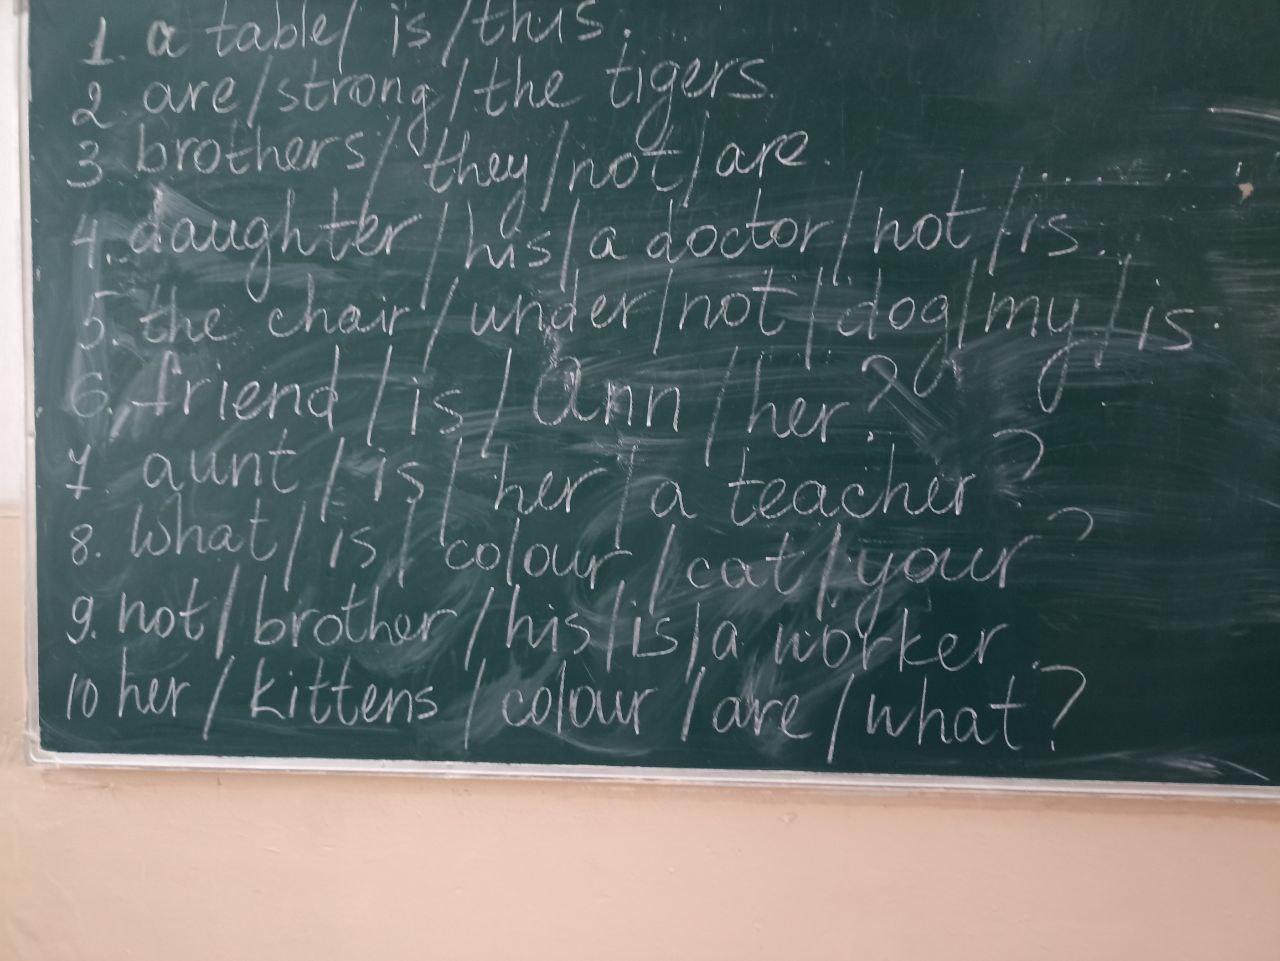 1. a table/ is/this.
2 are/strong/the tigers.
3 brothers/ they/not/are.
4. daughter/his/a doctor/not/is.
5. the chair/under/not/dog/my/is.
6. friend/is/Ann/her?
7. aunt/is/her/a teacher?
8. What/is/colour/cat/your?
9. not/brother/his/is/a worker
10 her/kittens/colour/are/what?